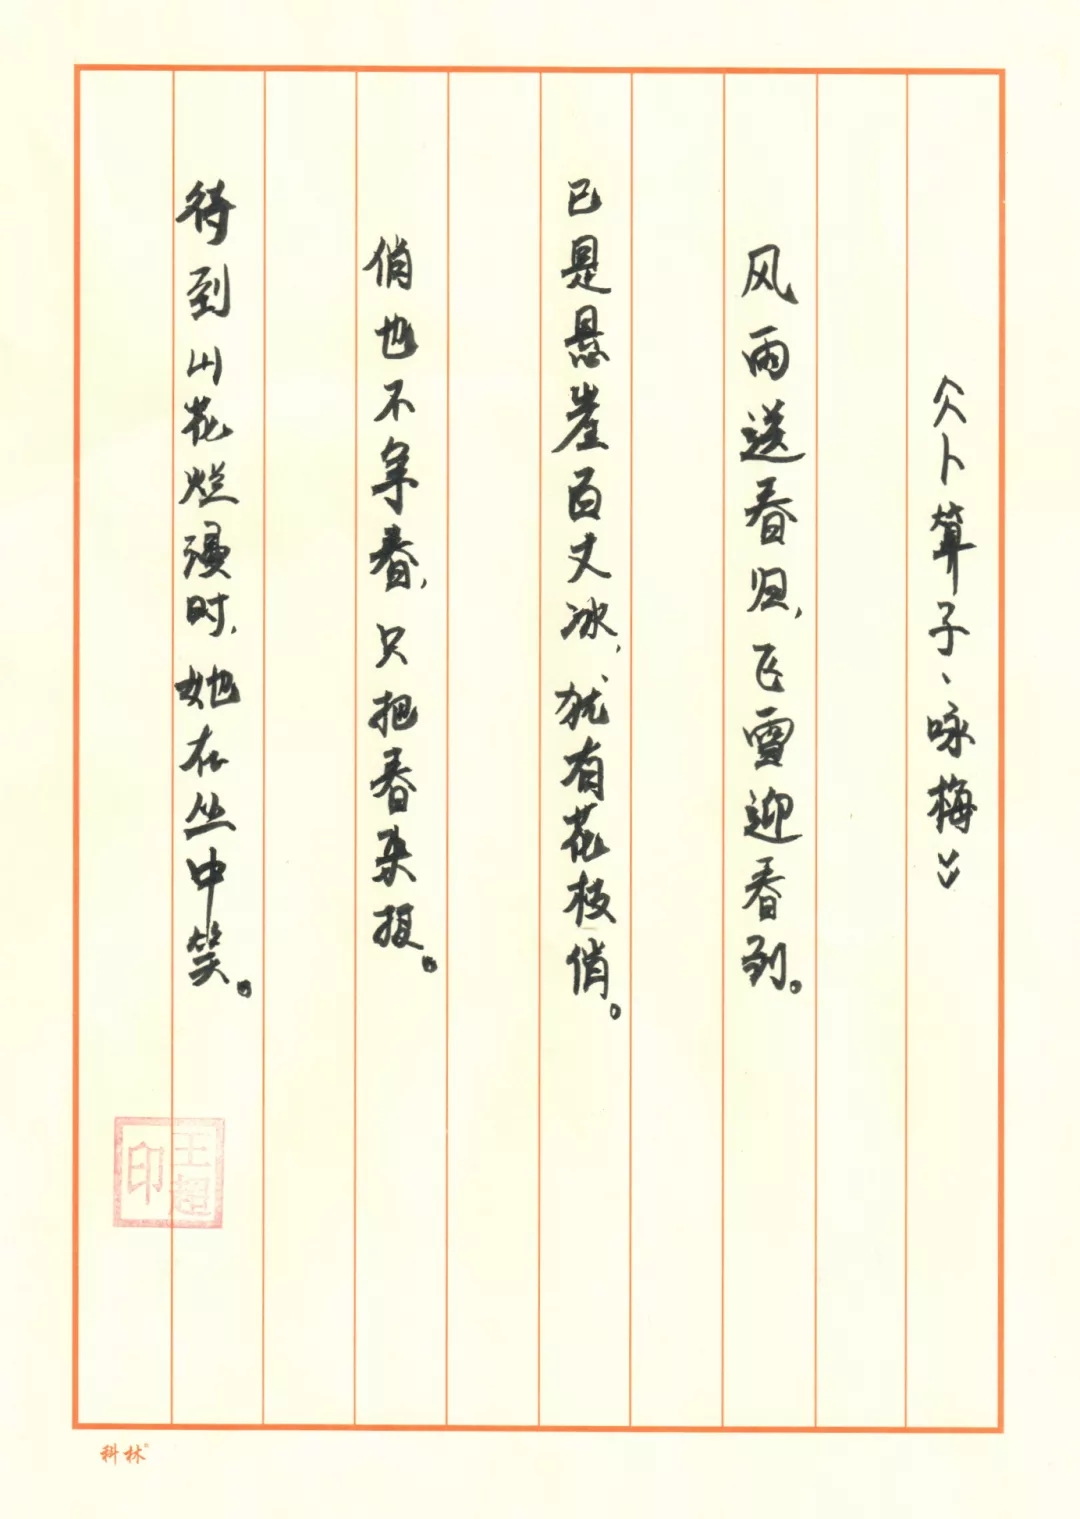 《卜算子、咏梅》
风雨送春归,飞雪迎春到。
已是悬崖百丈冰,犹有花枝俏。
俏也不争春,只把春来报。
待到山花烂漫时,她在丛中笑。
王超印
科林